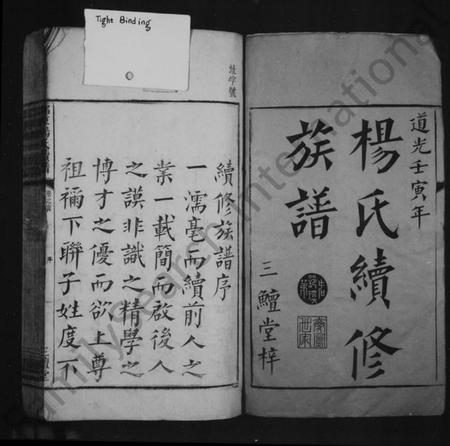 Tight Binding
道光壬寅年
楊氏續修
族譜
三鱣堂梓
續修族譜序
一濡毫而續前人之
業一載簡而啟後人
之謨非識之精學之
博才之優而欲上尊
祖禰下聯子姓度下
序